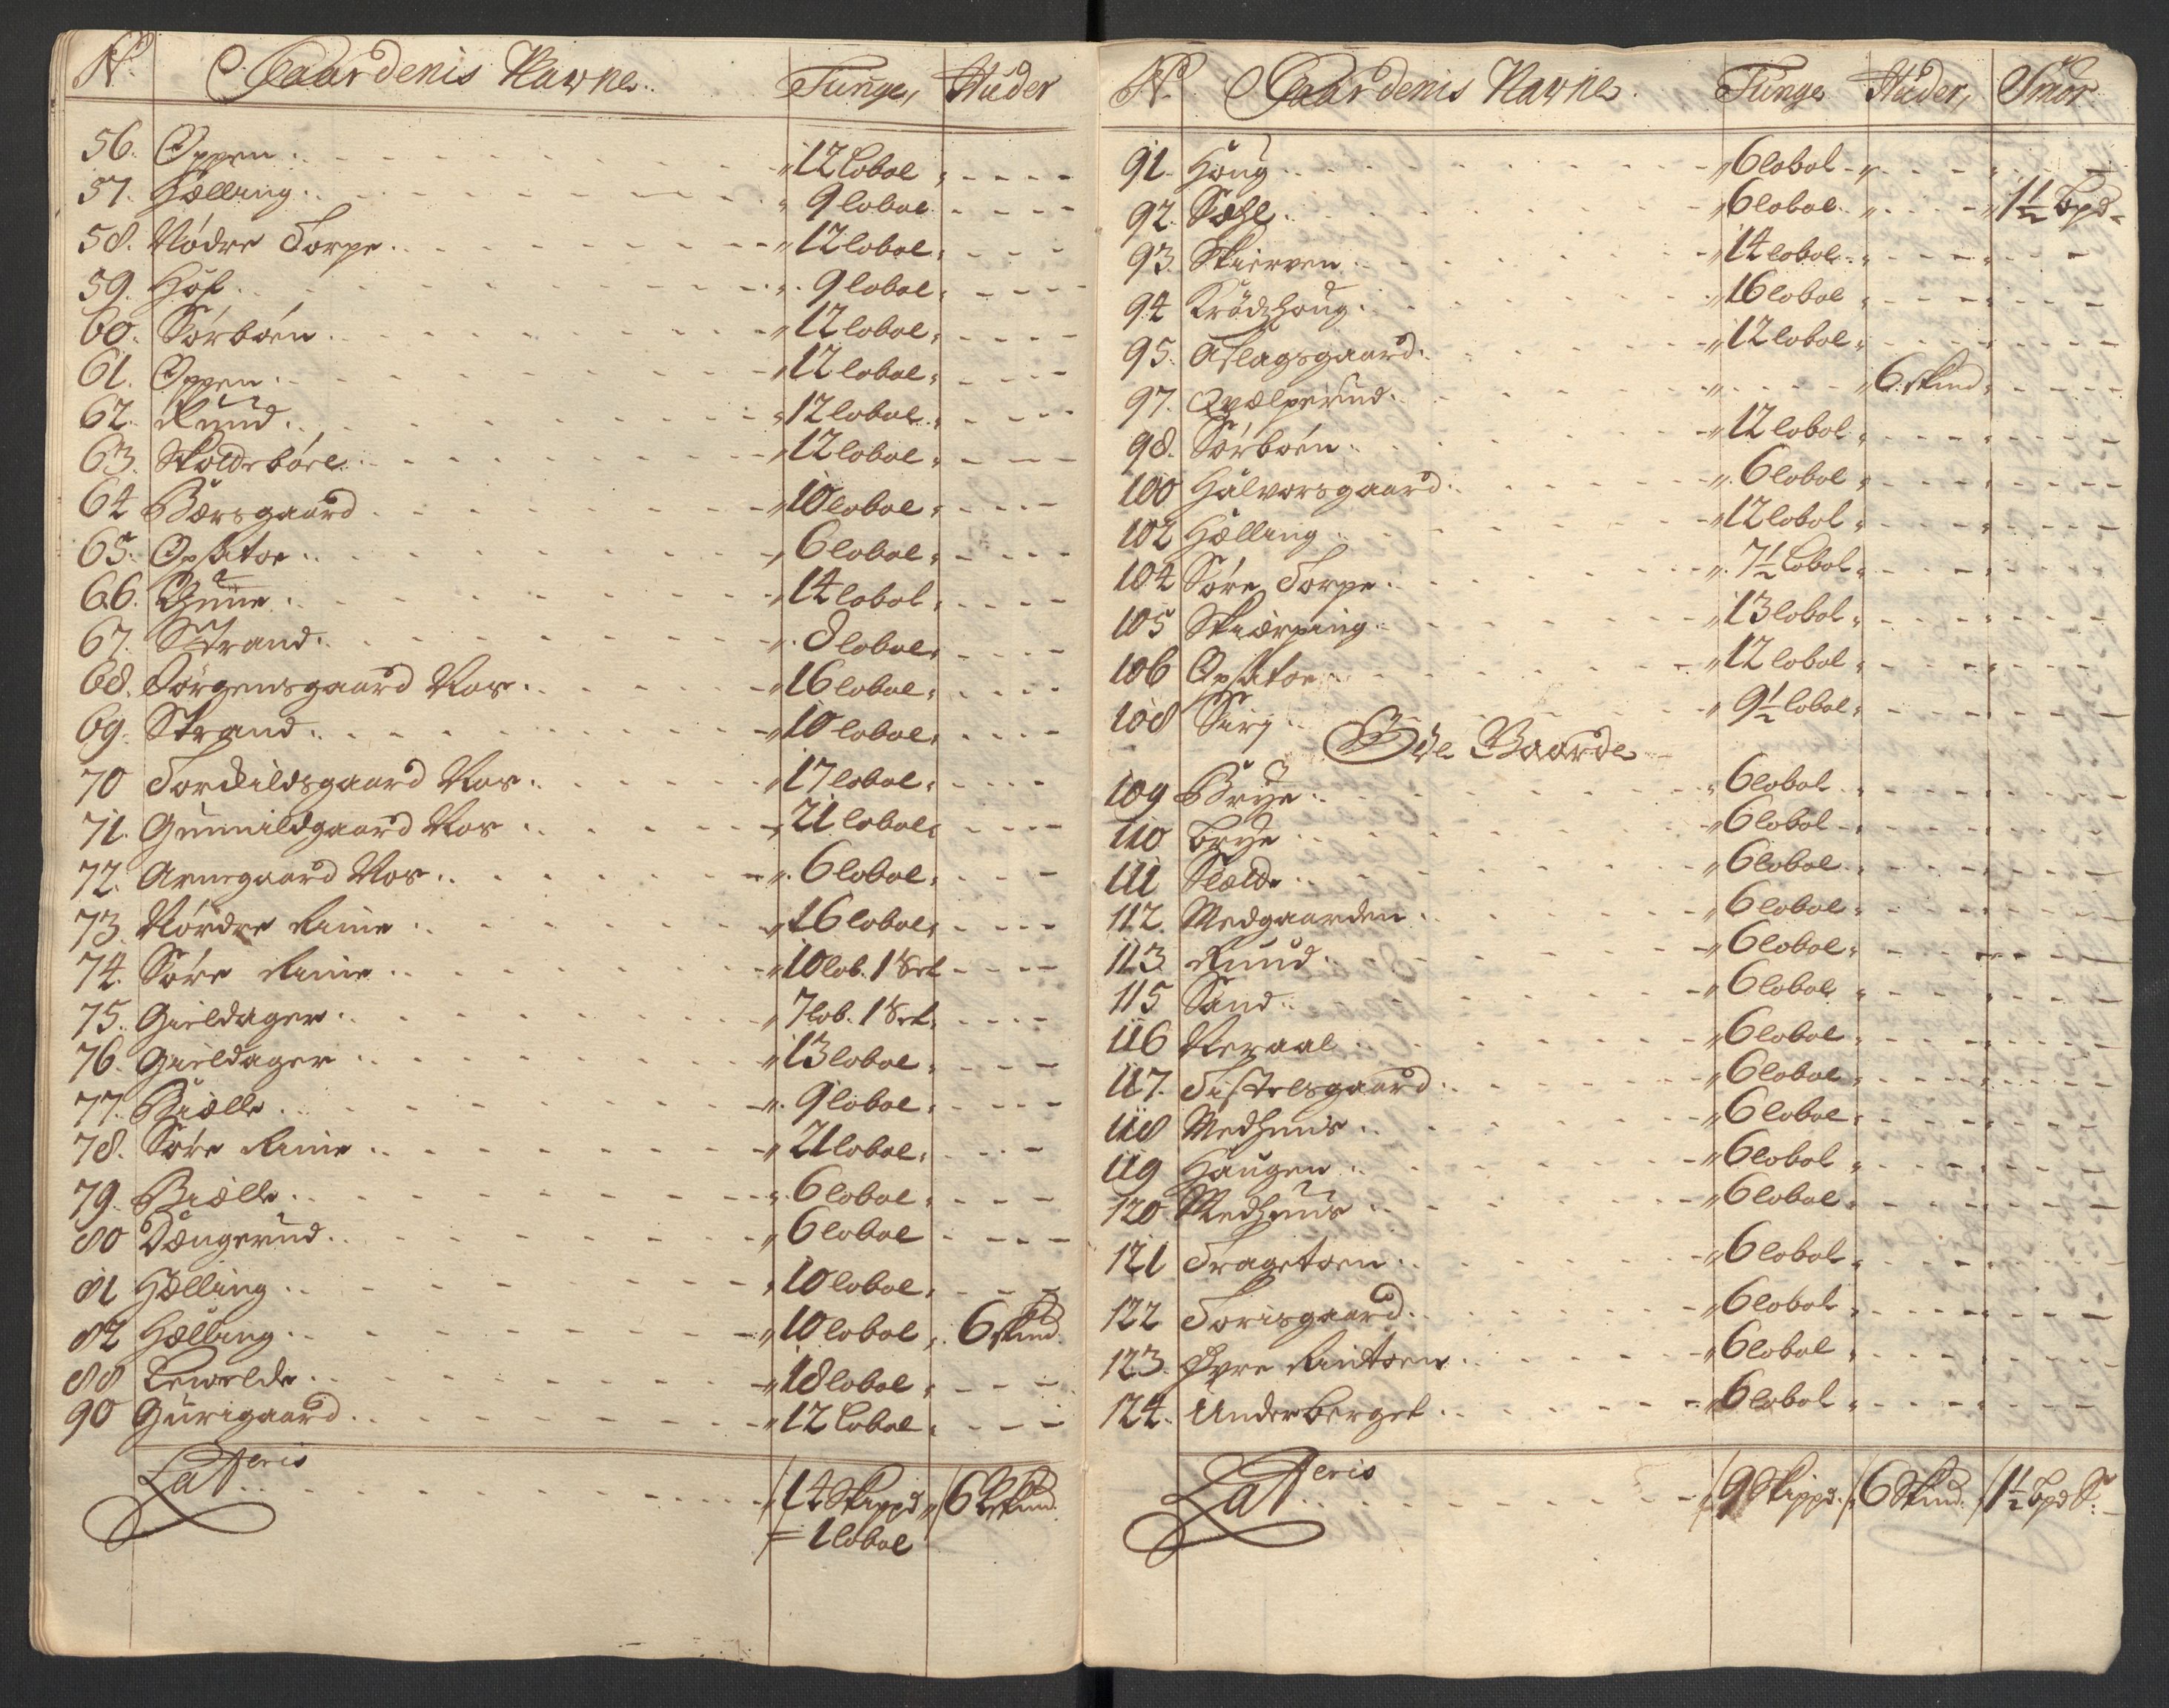 N. Gaardenis Nawne. Tunge, Huder
56. Oppen. 12 lobol
57. Hælling. 9 lobol
58. Nødre Torpe. 12 lobol
59. Hof. 9 lobol
60. Sørbøen. 12 lobol
61. Oppen. 12 lobol
62. Ruud. 12 lobol
63. Skoldebøre. 12 lobol
64 Børsgaard 10 lobol
65. Opsatoe. 6 lobol
66. Gune. 14 lobol
67. Strand. 8 lobol
68. Jørgensgaard Nas. 16 lobol
69. Strand. 10 lobol
70 Torkildsgaard Nas. 17 lobol
71. Gunnildgaard Nas 21 lobol
72. Arnegaard Nas. 6 lobol
73. Nørdre Rime 16 lobol
74. Søre Rime 10 lob. 1 Set
75. Gieldager. 7 lob. 1 Set
76. Gieldager 13 lobol
77. Biælle. 9 lobol
78. Søre Rime. 21 lobol
79. Biælle. 6 lobol
80 Dængerud. 6 lobol
81 Hælling. 10 lobol
82 Hælling. 10 lobol 6 skind
88 Lewelde. 18 lobol
90 Gurigaard. 12 lobol
Latteris 14 Skippd 6 Skind.
= 1 lobol
N. Gaardenis Nawne. Tunge Huder, Smör
91. Houg. 6 lobol
92. Sæhl. 6 lobol 1½ Lpd
93. Skierven. 14 lobol
94 Krødshoug. 16 lobol
95. Aslagsgaard. 12 lobol
97. Qvælperud. 6. skind
98. Sørbøen. 12 lobol
100 Halvorsgaard. 6 lobol
102 Hælling 12 lobol
104 Søre Torpe. 7½ lobol
105 Skiærping. 13 lobol
106 Opsatoe. 12 lobol
108 Sirj 9½ lobol
Øde Gaarde
109 Brye. 6 lobol
110 Brye 6 lobol
111 Slælde. 6 lobol
112. Medgaarden. 6 lobol
113 Ruud. 6 lobol
115 Sand. 6 lobol
116 Veraal 6 lobol
117. Tistelsgaard. 6 lobol
118 Medhuus. 6 lobol
119 Haugen. 6 lobol
120 Medhuus 6 lobol
121 Tragetoen. 6 lobol
122 Torisgaard. 6 lobol
123. Øvre Rintoen. 6 lobol
124. Underberget. 6 lobol
Latteris 9 Skippd. 6 Skind. 1½ Lpd S.